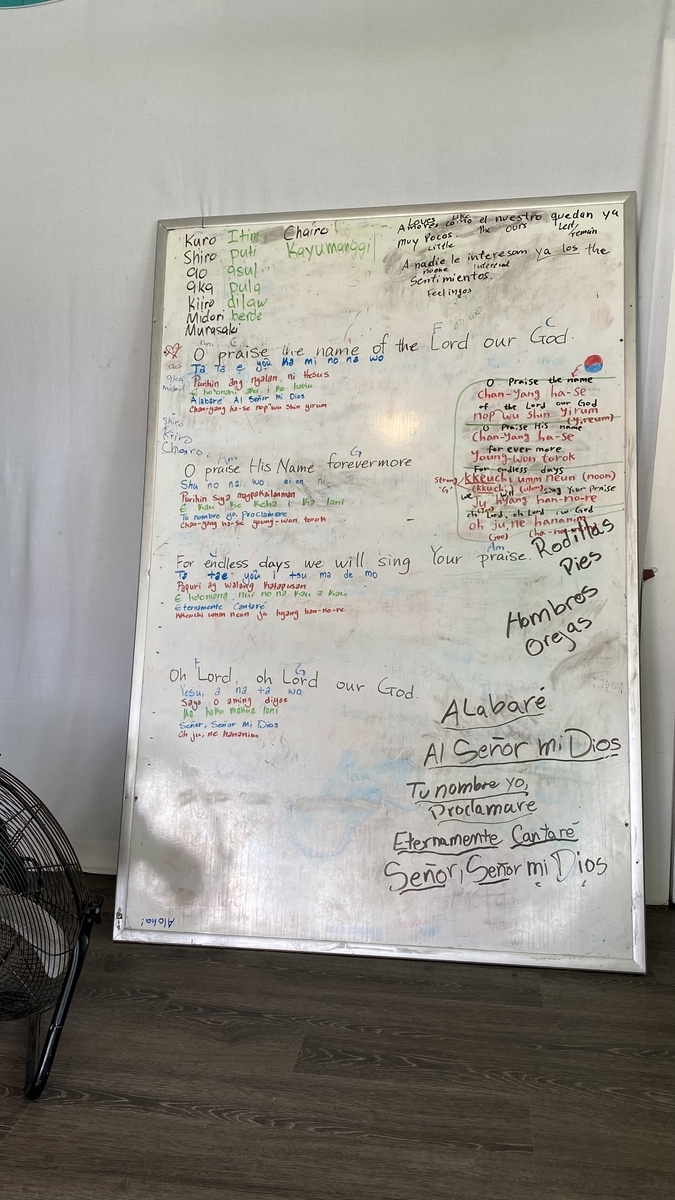 Kuro Itim Chairo
Shiro puti Kayumanggi
ao asul
aka pula
kiiro dilaw
Midori berde
Murasaki
Loves like
Amores como el nuestro quedan ya
the ours Left/
muy Pocos. remain
Little
A nadie le interesan ya los the
no one interest
Sentimientos.
Feelings
F C
O praise the name of the Lord our God.
Ta ta e you ka mi no na wo
Purihin ang ngalan ni Hesus
Alabaré Al Señor mi Dios
Chan-yang ha-se nop wu Shin yirum
ao
aka
midori
Shiro
Kiiro
Chairo
Am G
O praise His Name forevermore
Shu no na wo ei en ni
Purihin Sya magpakailanman
Tu nombre yo, Proclamare
Chan-yang ha-se young-won torok
For endless days we will sing Your praise.
Am
Ta tae you i tsu ma de mo
Papuri ay walang katapusan
Eternamente Cantaré
kkeuchi umm neun ju hyang han-no-re
F G
Oh Lord, oh Lord our God.
Yesu, a na ta wo
Sayo o aming diyos
Ka haku makua lani
Señor, Señor mi Dios
Oh ju, ne hananim
O Praise the name
Chan-yang ha-se
of the Lord our God
nop wu shin yirum
(yireum)
O Praise His name
Chan-yang ha-se
for ever more
Young-won torok
For endless days
Strong kkeuchi umm neun (noon)
"G" (kkeuchi)
we will sing Your Praise
ju hyang han-no-re
oh Lord, oh Lord our God
oh ju, ne hananim
(joo)
Rodillas
Pies
Hombros
Orejas
Alabaré
Al Señor mi Dios
Tu nombre yo,
Proclamare
Eternamente Cantaré
Señor, Señor mi Dios
Aloha!